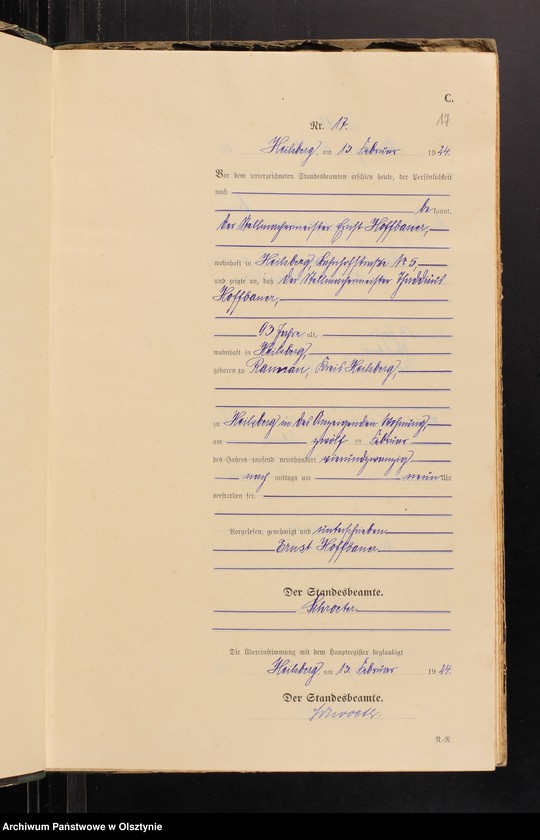 C.
17
Nr. 17.
Heilsberg, am 13. Februar 1924.
Vor dem unterzeichneten Standesbeamten erschien heute, der Persönlichkeit
nach
bekannt,
der Stellmachermeister Ernst Hoffbauer,
wohnhaft in Heilsberg, Bahnhofstraße No 5,
und zeigte an, daß der Stellmachermeister Thaddäus
Hoffbauer,
Jahre alt,
wohnhaft in Heilsberg,
geboren zu Raunau, Kreis Heilsberg,
zu Heilsberg in des Anzeigenden Wohnung,
am zwölf ten Februar
des Jahres tausend neunhundert vierundzwanzig
nach mittags um neun Uhr
verstorben sei.
Vorgelesen, genehmigt und unterschrieben
Ernst Hoffbauer.
Der Standesbeamte.
Schroeter
Die Übereinstimmung mit dem Hauptregister beglaubigt
Heilsberg, am 13. Februar 1924.
Der Standesbeamte.
Schroeter.
Archiwum Państwowe w Olsztynie